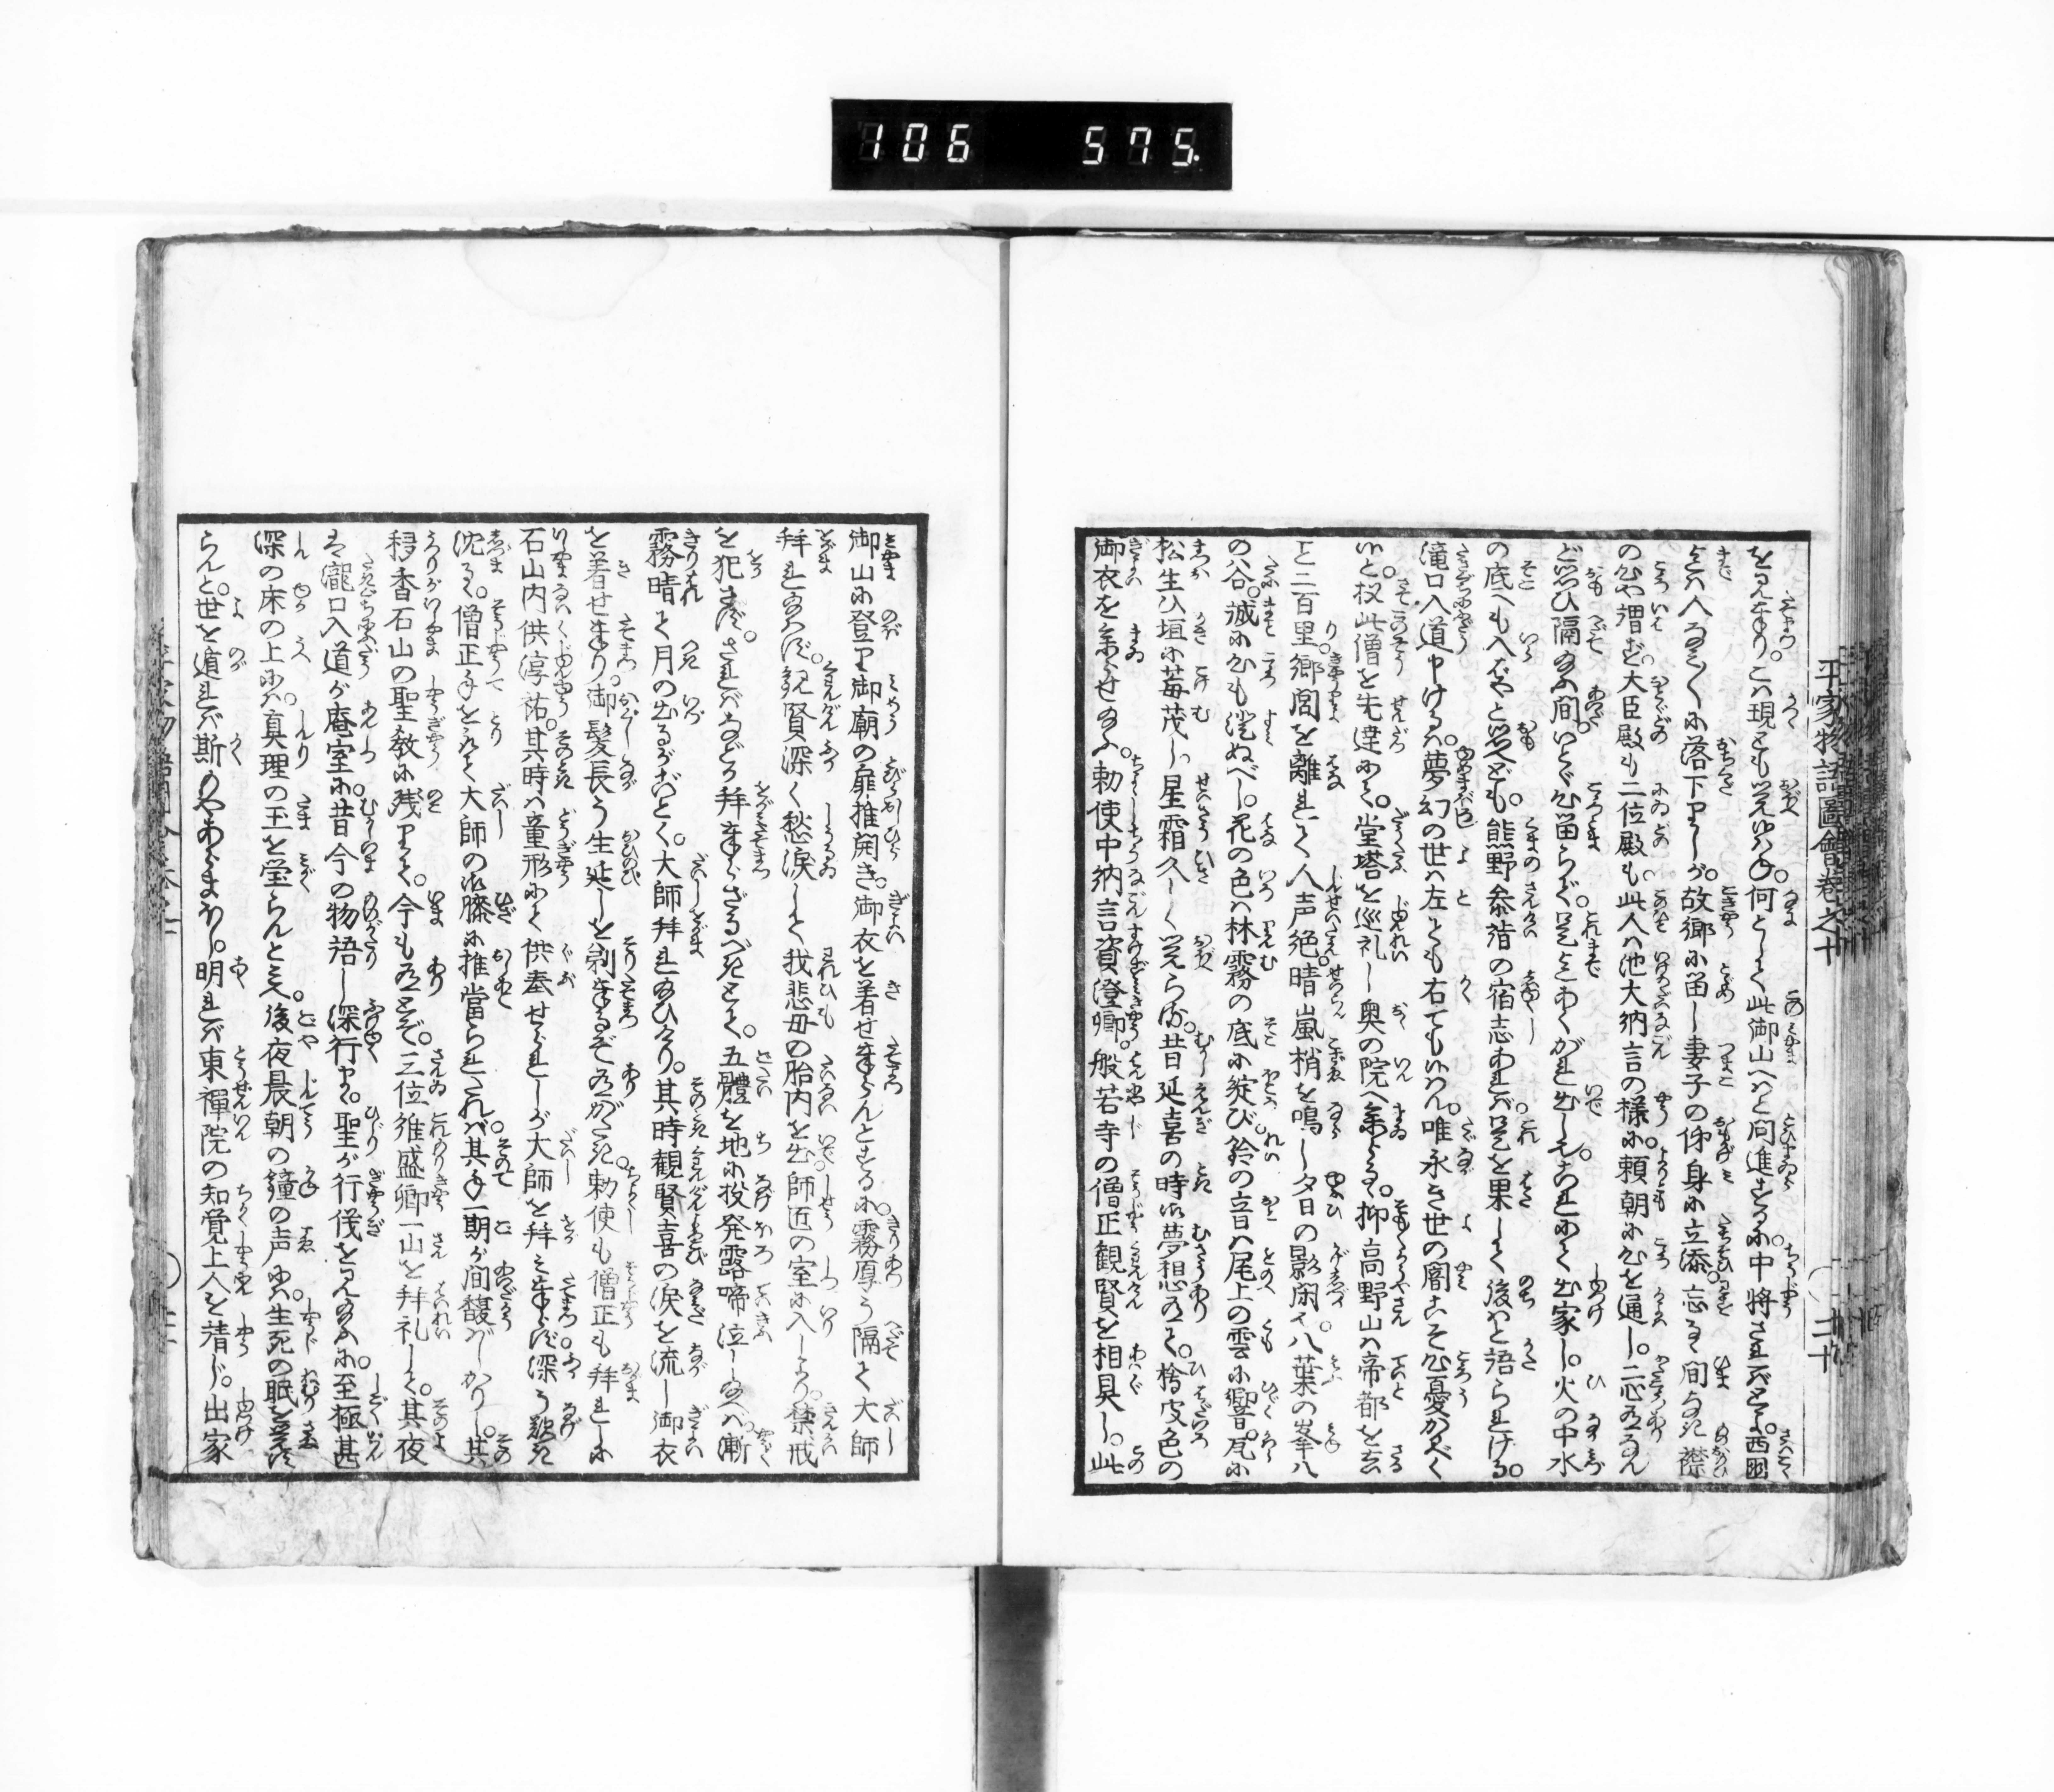 106 575.
平家物語圖會卷之十
二十
を見奉り。こハ現とも覚ゆハず。何として此御山へハと問進するに。中将さればとよ。西國
迄ハ人なミ〳〵に落下りしが。故郷に留し妻子の俤身に立添。忘るゝ間なき襟
の心や謂ず。大臣殿も二位殿も。此人ハ池大納言の様に。頼朝に心を通し。二心有なん
ど思ひ隔給ふ間。いとゞ心留らず。是迄あくがれ出しぞ。これにて出家し。火の中水
の底へも入ばやと思へども。熊野参詣の宿志あれバ是を果して後ハと語られける。
滝口入道申けるハ。夢幻の世ハ左ても右てもいハん。唯永き世の闇こそ心憂かるべく
いと。扠此僧を先達にて。堂塔を巡礼し奥の院へ参らる。抑高野山ハ帝都を去
と二百里。郷閭を離れて人声絶。晴嵐梢を鳴し夕日の影閑に。八葉の峯八
の谷。誠に心も澄ぬべし。花の色ハ林霧の底に綻び。鈴の音ハ尾上の雲に響。瓦に
松生ひ垣に苺茂し。星霜久しく覚らる。昔延喜の時御夢想有て。檜皮色の
御衣を参らせ給ふ。勅使中納言資澄卿。般若寺の僧正観賢を相具し。此
御山に登り御廟の扉推開き。御衣を着せ奉らんとするに。霧厚う隔て大師
拜れ給ハず。観賢深く愁涙して我悲母の胎内を出。師匠の室に入しより。禁戒
を犯さず。さればなどか拜奉らざるべきとて。五體を地に投発露啼泣し給へバ漸
霧晴て月の出るがごとく。大師拜れ給ひけり。其時観賢喜の涙を流し御衣
を着せ奉り。御髪長う生延しを剃奉るぞ有がたき。勅使も僧正も拜れしに
石山内供淳祐。其時ハ童形にて供奉せられしが大師を拜ミ奉らず。深う歎き
沈る。僧正手をとて大師の御膝に推當られたれバ。其手一期が間馥バしかりし。其
移香石山の聖教に残りて。今も有とぞ。三位維盛卿一山を拜礼して。其夜
ハ瀧口入道が庵室に。昔今の物語し深行まゝ。聖が行儀を見給ふに。至極甚
深の床の上にハ。真理の玉を瑩らんとミへ。後夜晨朝の鐘の声にハ。生死の眠を覚す
らんと。世を遁れバ斯もやあらまほし。明れバ東禪院の知覚上人を請じ。出家